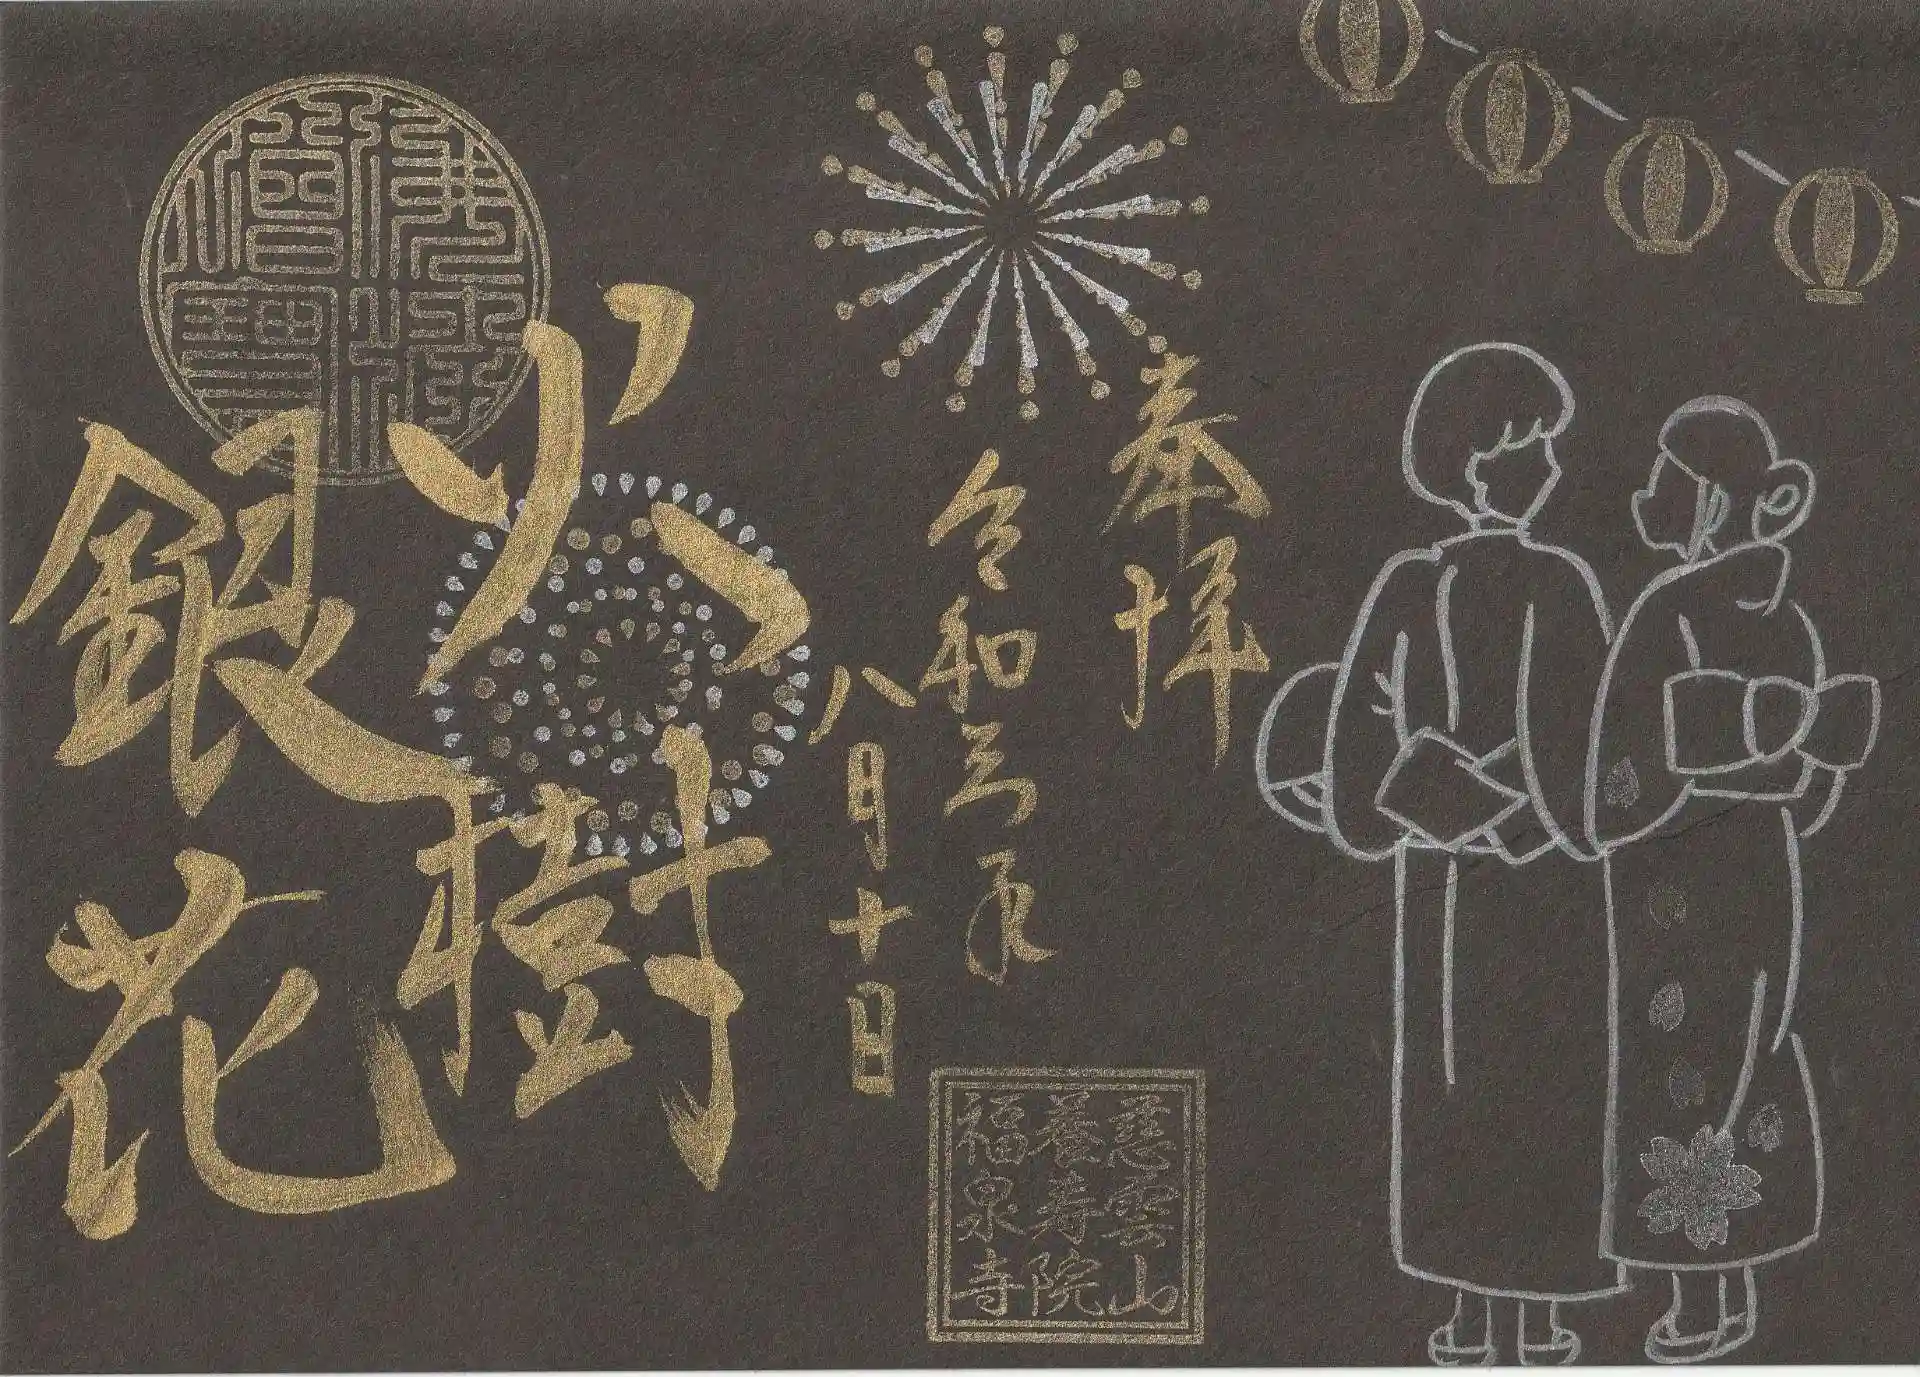 奉拝
令和三年
八月十日
火樹
銀花
佛法僧寶
慈雲山
養寿院
福泉寺